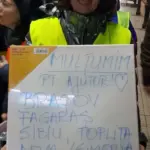 MULȚUMIM
PT AJUTOR ♡
BRAȘOV
FĂGĂRAȘ
SIBIU TOPLIȚA